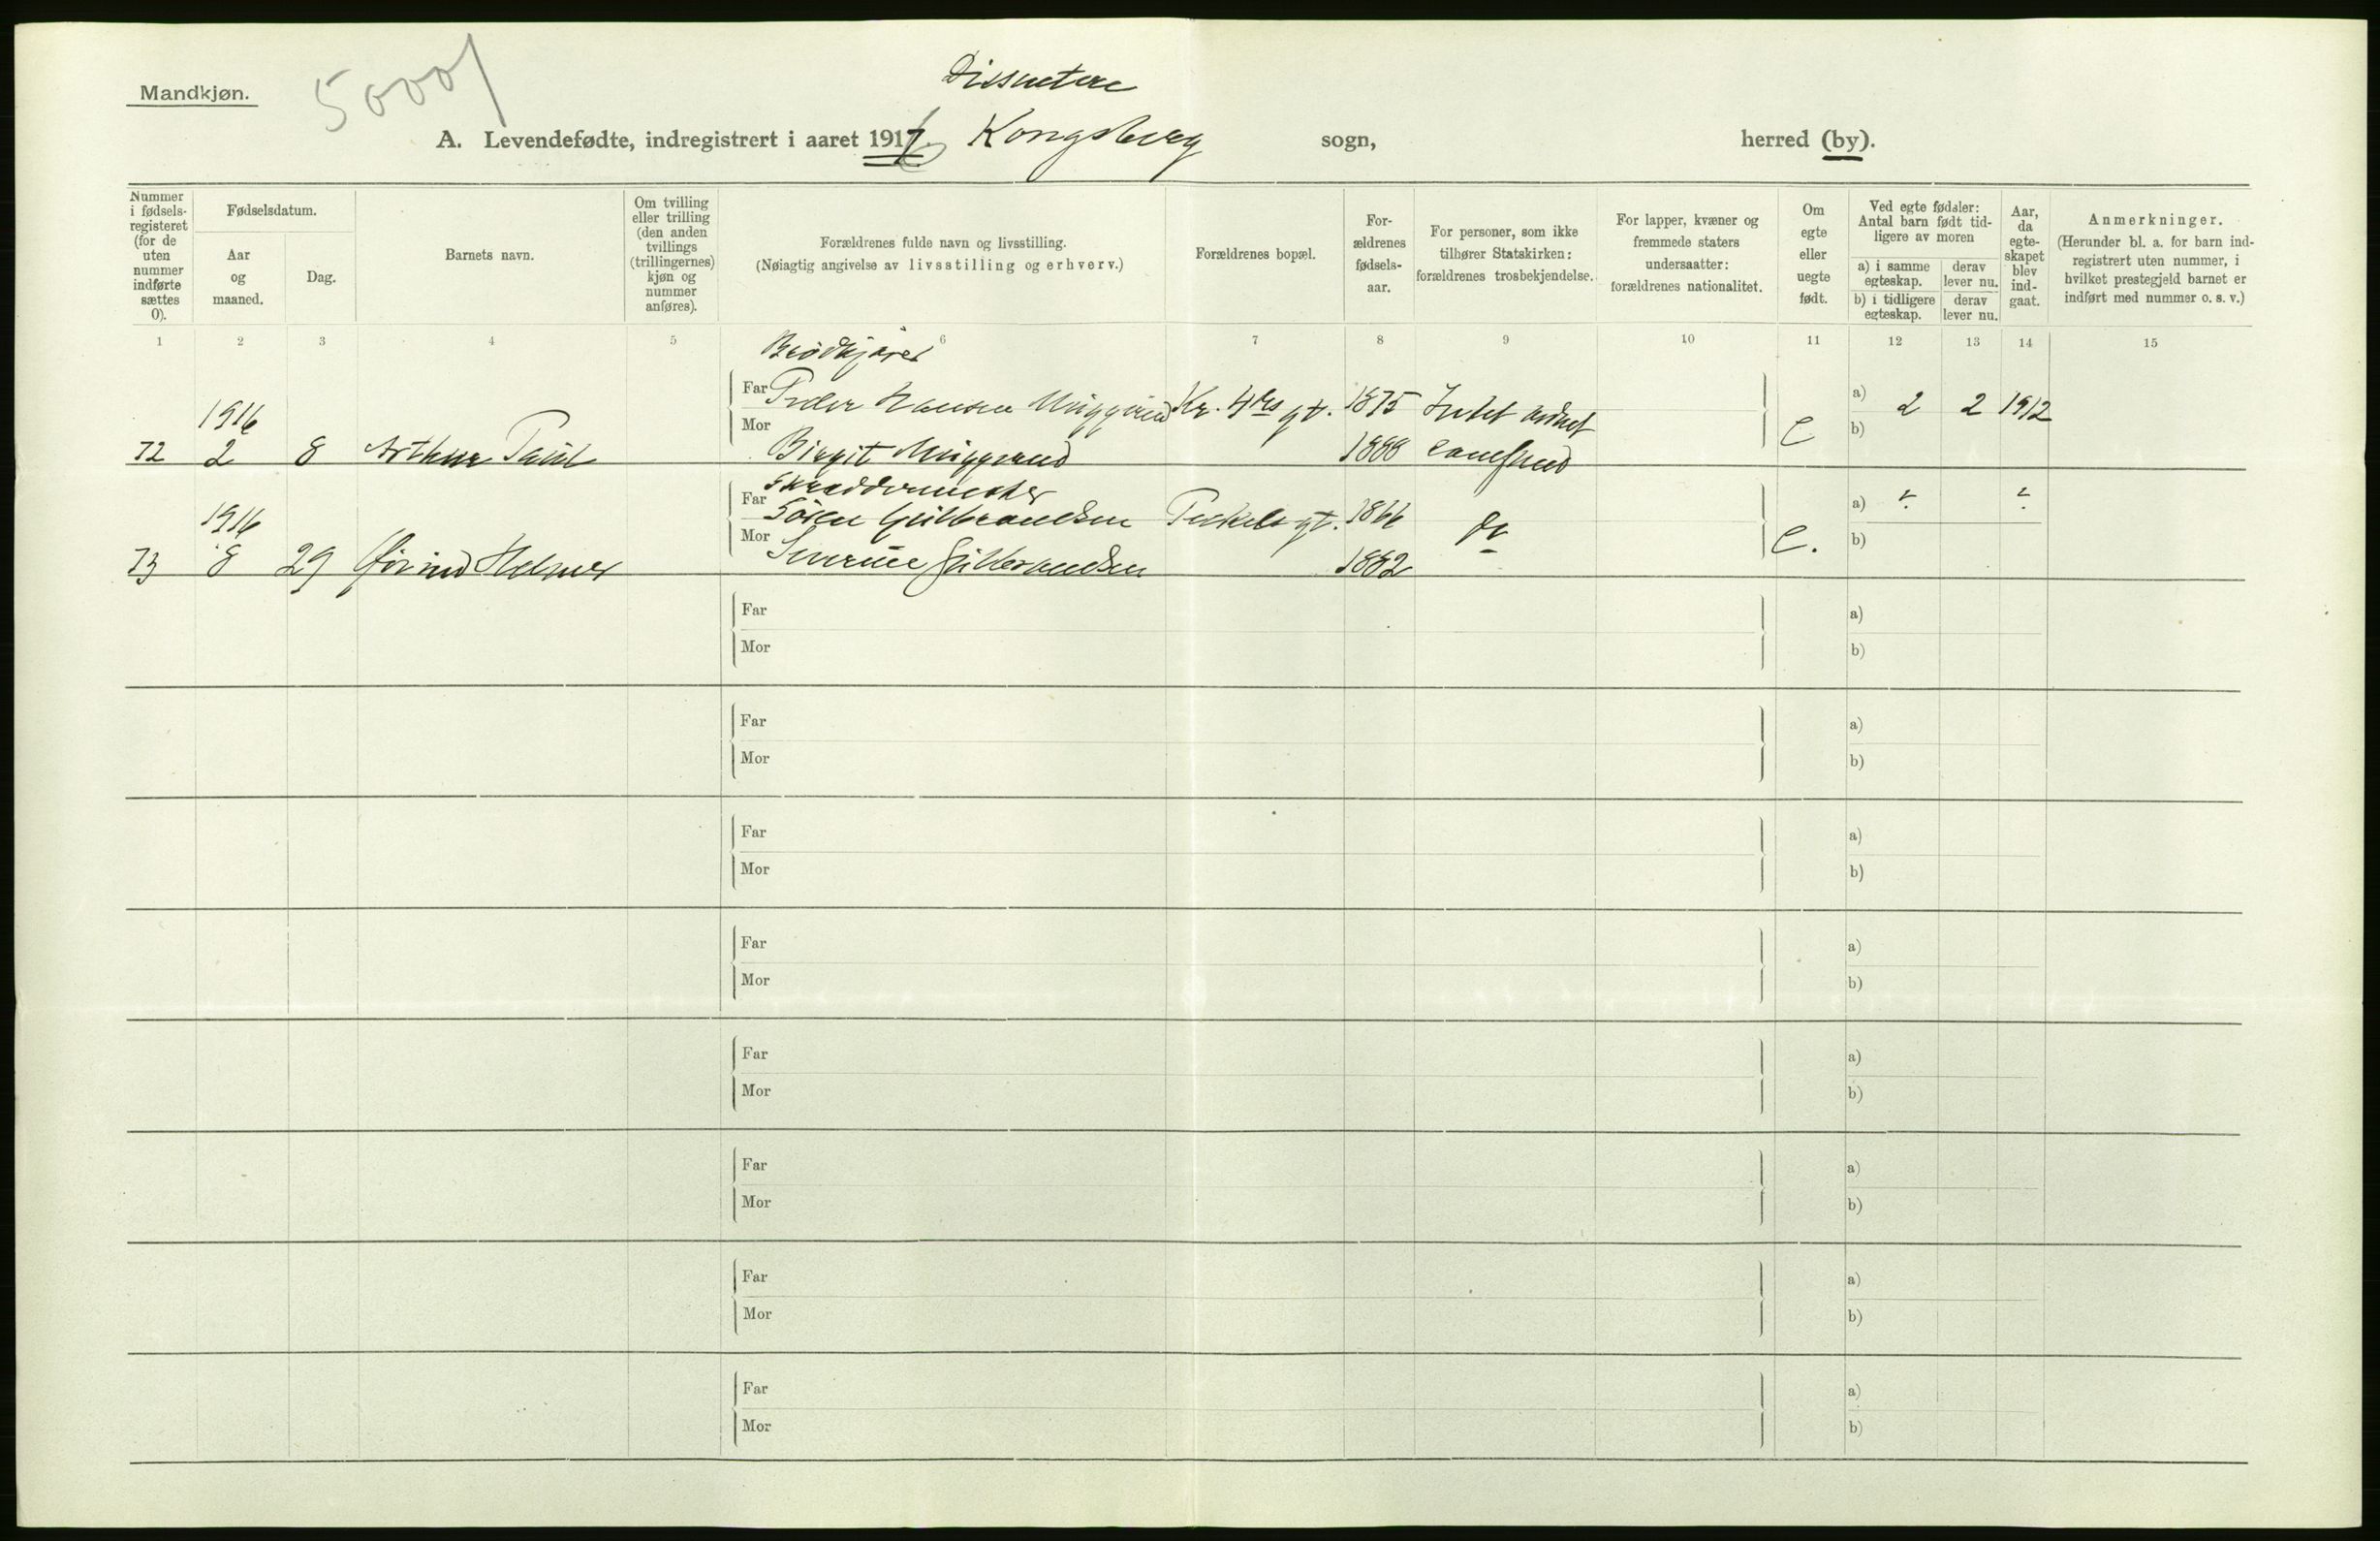 Mandkjøn.
50001
Dissentere
A. Levendefødte, indregistrert i aaret 1916 Kongsberg sogn, herred (by).
Nummer i fødsels-registeret (for de uten nummer indførte sættes 0).
Fødselsdatum.
Aar og maaned.
Dag.
Barnets navn.
Om tvilling eller trilling (den anden tvillings (trillingernes) kjøn og nummer anføres).
Forældrenes fulde navn og livsstilling.
(Nøiagtig angivelse av livsstilling og erhverv.)
Forældrenes bopæl.
For-ældrenes fødsels-aar.
For personer, som ikke tilhører Statskirken: forældrenes trosbekjendelse.
For lapper, kvæner og fremmede staters undersaatter: forældrenes nationalitet.
Om egte eller uegte født.
Ved egte fødsler: Antal barn født tid-ligere av moren
a) i samme egteskap.
derav lever nu.
b) i tidligere egteskap.
derav lever nu.
Aar, da egte-skapet blev ind-gaat.
Anmerkninger.
(Herunder bl. a. for barn ind-registrert uten nummer, i hvilket prestegjeld barnet er indført med nummer o. s. v.)
1 2 3 4 5 6 7 8 9 10 11 12 13 14 15
Brødkjører
Far Peder Hansen Kr. 4des gt. 1875 Intet a) 2 2 1912
1916
Mor b)
72 2 8 Arthur Paul Birgit 1888 e
Skreddermester
Far Søren Gulbrandsen gt. 1866 do a) - -
1916
Mor e. b)
73 8 29 Øivind Gulbrandsen 1882
Far a)
Mor b)
Far a)
Mor b)
Far a)
Mor b)
Far a)
Mor b)
Far a)
Mor b)
Far a)
Mor b)
Far a)
Mor b)
Far a)
Mor b)